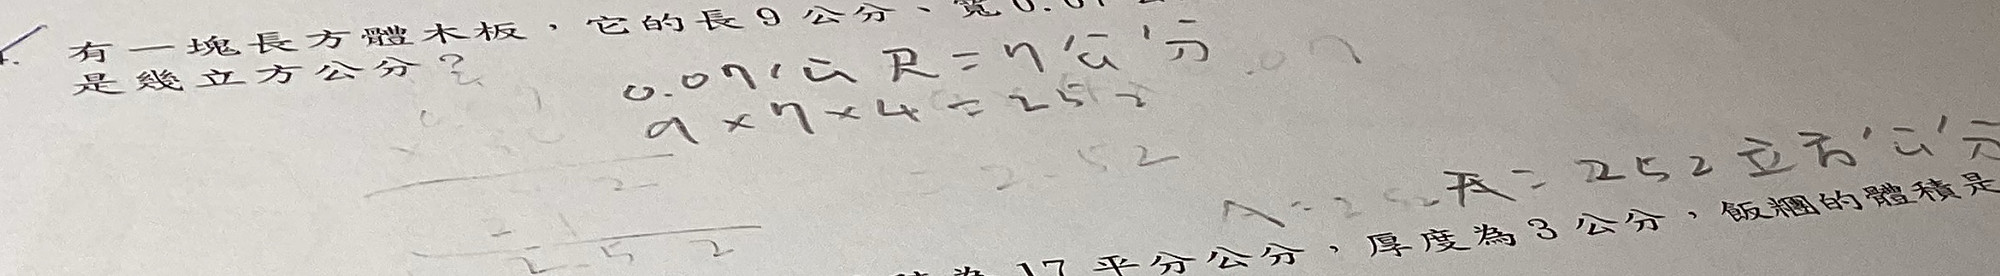 有一塊長方體木板，它的長9公分、寬0.0
是幾立方公分？
0.07公尺=7公分
9×7×4=252
2.52
A=252立方公分
252
17平分公分，厚度為3公分，飯糰的體積是